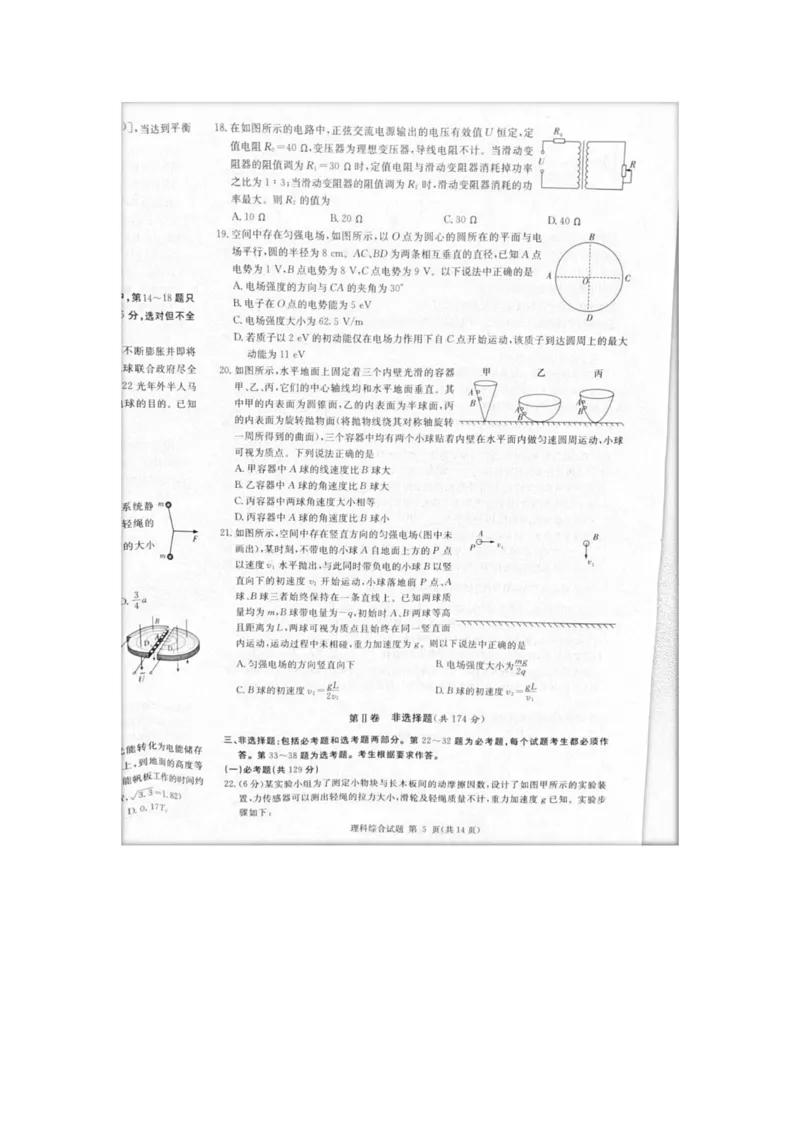 )],当达到平衡
中,第14～18题只
分,选对但不全
不断膨胀并即将
球联合政府尽全
22光年外半人马
球的目的。已知
系统静
轻绳的
的大小
m
F
m
D. 3/4 a
B
D₁
U
能转化为电能储存
上,到地面的高度等
能帆板工作的时间约
√3.3=1.82)
D. 0.17T。
18.在如图所示的电路中,正弦交流电源输出的电压有效值U恒定,定
值电阻R₀=40 Ω,变压器为理想变压器,导线电阻不计。当滑动变
阻器的阻值调为R₁=30 Ω时,定值电阻与滑动变阻器消耗掉功率
之比为1∶3;当滑动变阻器的阻值调为R₂时,滑动变阻器消耗的功
率最大。则R₂的值为
R₀
U
R
A.10 Ω B.20 Ω C.30 Ω D.40 Ω
19.空间中存在匀强电场,如图所示,以O点为圆心的圆所在的平面与电
场平行,圆的半径为8 cm。AC、BD为两条相互垂直的直径,已知A点
电势为1 V,B点电势为8 V,C点电势为9 V。以下说法中正确的是
A.电场强度的方向与CA的夹角为30°
B.电子在O点的电势能为5 eV
C.电场强度大小为62.5 V/m
D.若质子以2 eV的初动能仅在电场力作用下自C点开始运动,该质子到达圆周上的最大
动能为11 eV
B
A
O
C
D
20.如图所示,水平地面上固定着三个内壁光滑的容器
甲、乙、丙,它们的中心轴线均和水平地面垂直。其
中甲的内表面为圆锥面,乙的内表面为半球面,丙
的内表面为旋转抛物面(将抛物线绕其对称轴旋转
一周所得到的曲面),三个容器中均有两个小球贴着内壁在水平面内做匀速圆周运动,小球
可视为质点。下列说法正确的是
甲 乙 丙
A
B
A
B
A
B
A.甲容器中A球的线速度比B球大
B.乙容器中A球的角速度比B球大
C.丙容器中两球角速度大小相等
D.丙容器中A球的角速度比B球小
21.如图所示,空间中存在竖直方向的匀强电场(图中未
画出),某时刻,不带电的小球A自地面上方的P点
以速度v₁水平抛出,与此同时带负电的小球B以竖
直向下的初速度v₂开始运动,小球落地前P点、A
球、B球三者始终保持在一条直线上。已知两球质
量均为m,B球带电量为-q,初始时A、B两球等高
且距离为L,两球可视为质点且始终在同一竖直面
内运动,运动过程中未相碰,重力加速度为g。则以下说法中正确的是
A
P
v₁
B
v₂
A.匀强电场的方向竖直向下 B.电场强度大小为mg/2q
C.B球的初速度v₂=gL/2v₁ D.B球的初速度v₂=gL/v₁
第Ⅱ卷 非选择题(共174分)
三、非选择题:包括必考题和选考题两部分。第22～32题为必考题,每个试题考生都必须作
答。第33～38题为选考题。考生根据要求作答。
(一)必考题(共129分)
22.(6分)某实验小组为了测定小物块与长木板间的动摩擦因数,设计了如图甲所示的实验装
置,力传感器可以测出轻绳的拉力大小,滑轮及轻绳质量不计,重力加速度g已知。实验步
骤如下:
理科综合试题 第 5 页(共14页)